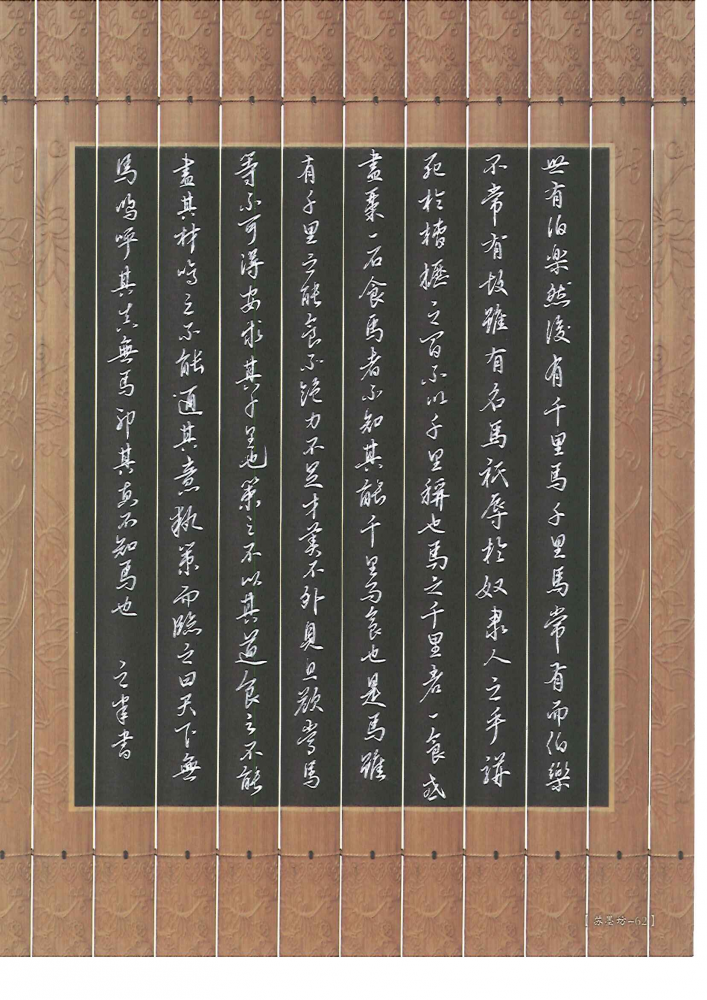 世有伯樂然後有千里馬千里馬常有而伯樂
不常有故雖有名馬祇辱於奴隸人之手駢
死於槽櫪之間不以千里稱也馬之千里者一食或
盡粟一石食馬者不知其能千里而食也是馬雖
有千里之能食不飽力不足才美不外見且欲常馬
等不可得安求其千里也策之不以其道食之不能
盡其材鳴之不能通其意執策而臨之曰天下無
馬嗚呼其真無馬邪其真不知馬也 之書
[苏墨坊-62]